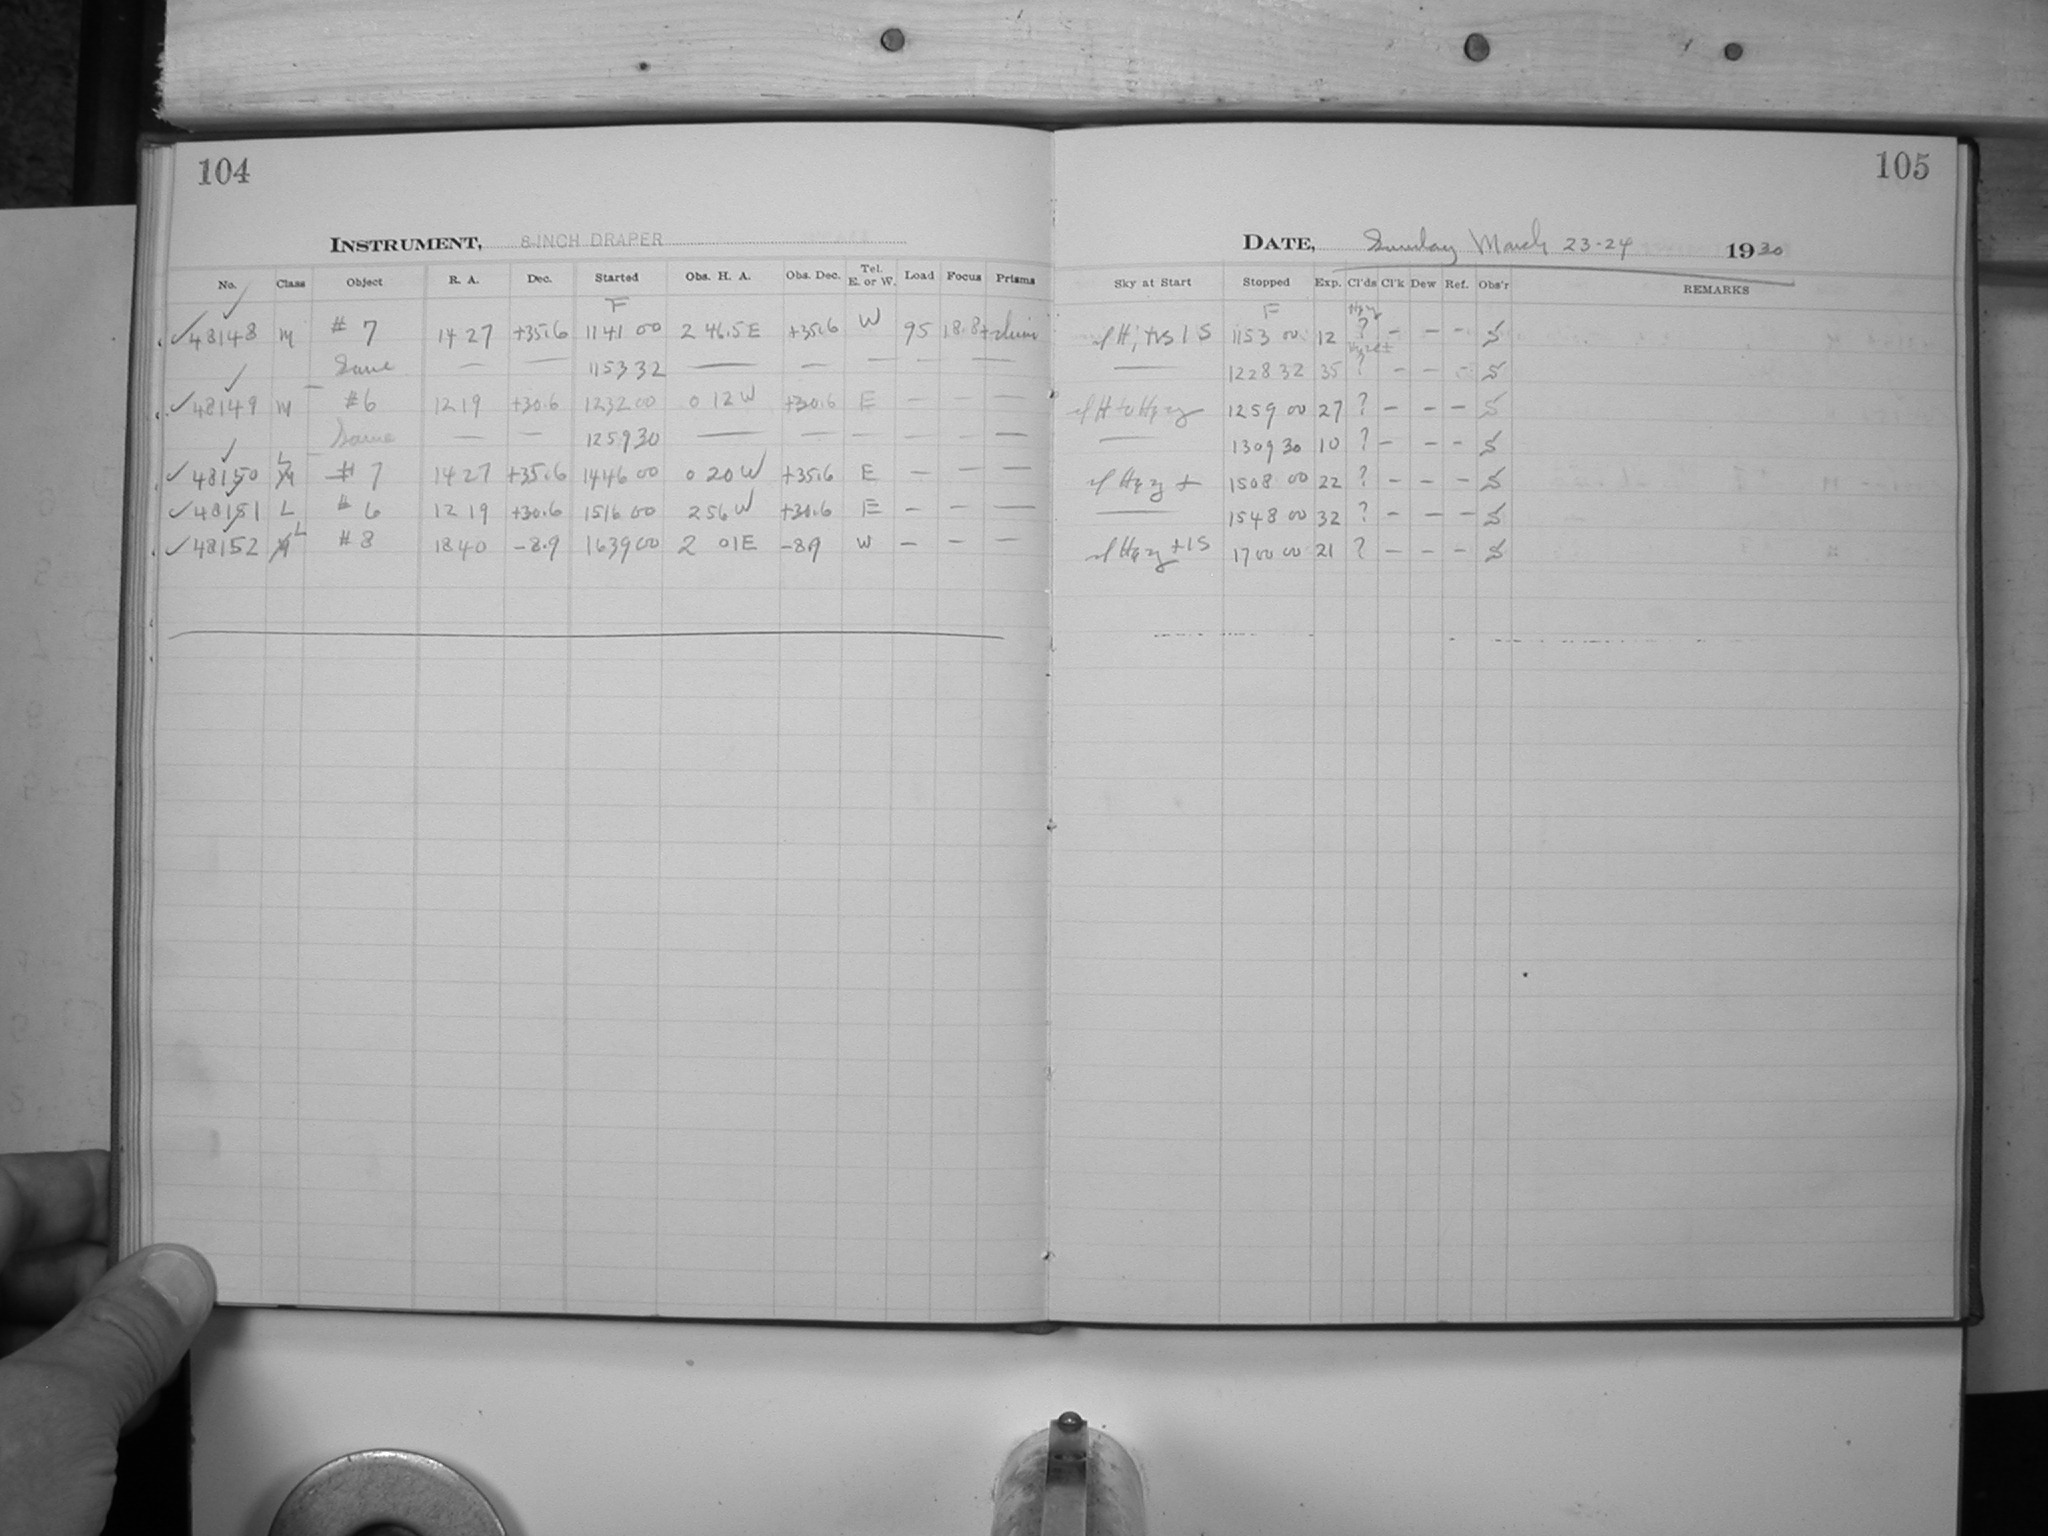 104
INSTRUMENT, 8-INCH DRAPER
No. Class Object R. A. Dec. Started Obs. H. A. Obs. Dec. Tel. E. or W. Load Focus Prisms
F
✓48148 M #7 14 27 +35.6 11 41 00 2 46.5 E +35.6 W 95 18.8+
Same — — 11 53 32 — — — — — —
✓48149 M #6 12 19 +30.6 12 32 00 0 12 W +30.6 E — — —
Same — — 12 59 30 — — — — — —
✓48150 L #7 14 27 +35.6 14 46 00 0 20 W +35.6 E — — —
✓48151 L #6 12 19 +30.6 15 16 00 2 56 W +30.6 E — — —
✓48152 L #8 18 40 -8.9 16 39 00 2 01 E -8.9 W — — —
105
DATE, Sunday March 23-24 1930
Sky at Start Stopped Exp. Cl'ds Cl'k Dew Ref. Obs'r REMARKS
F
11 53 00 12 ? — — — S
— 12 28 32 35 ? — — — S
12 59 00 27 ? — — — S
— 13 09 30 10 ? — — — S
15 08 00 22 ? — — — S
— 15 48 00 32 ? — — — S
17 00 00 21 ? — — — S